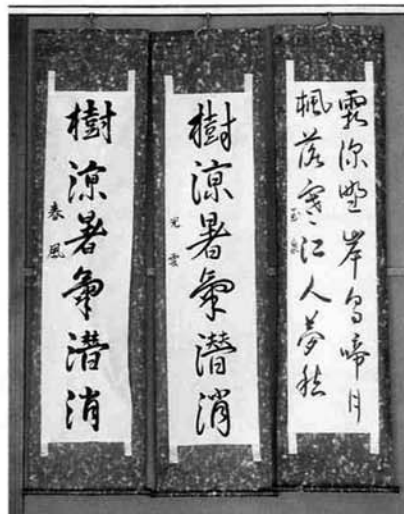 霜深墅岸烏啼月
楓落寒江人夢愁
樹涼暑氣潛消
樹涼暑氣潛消
春風